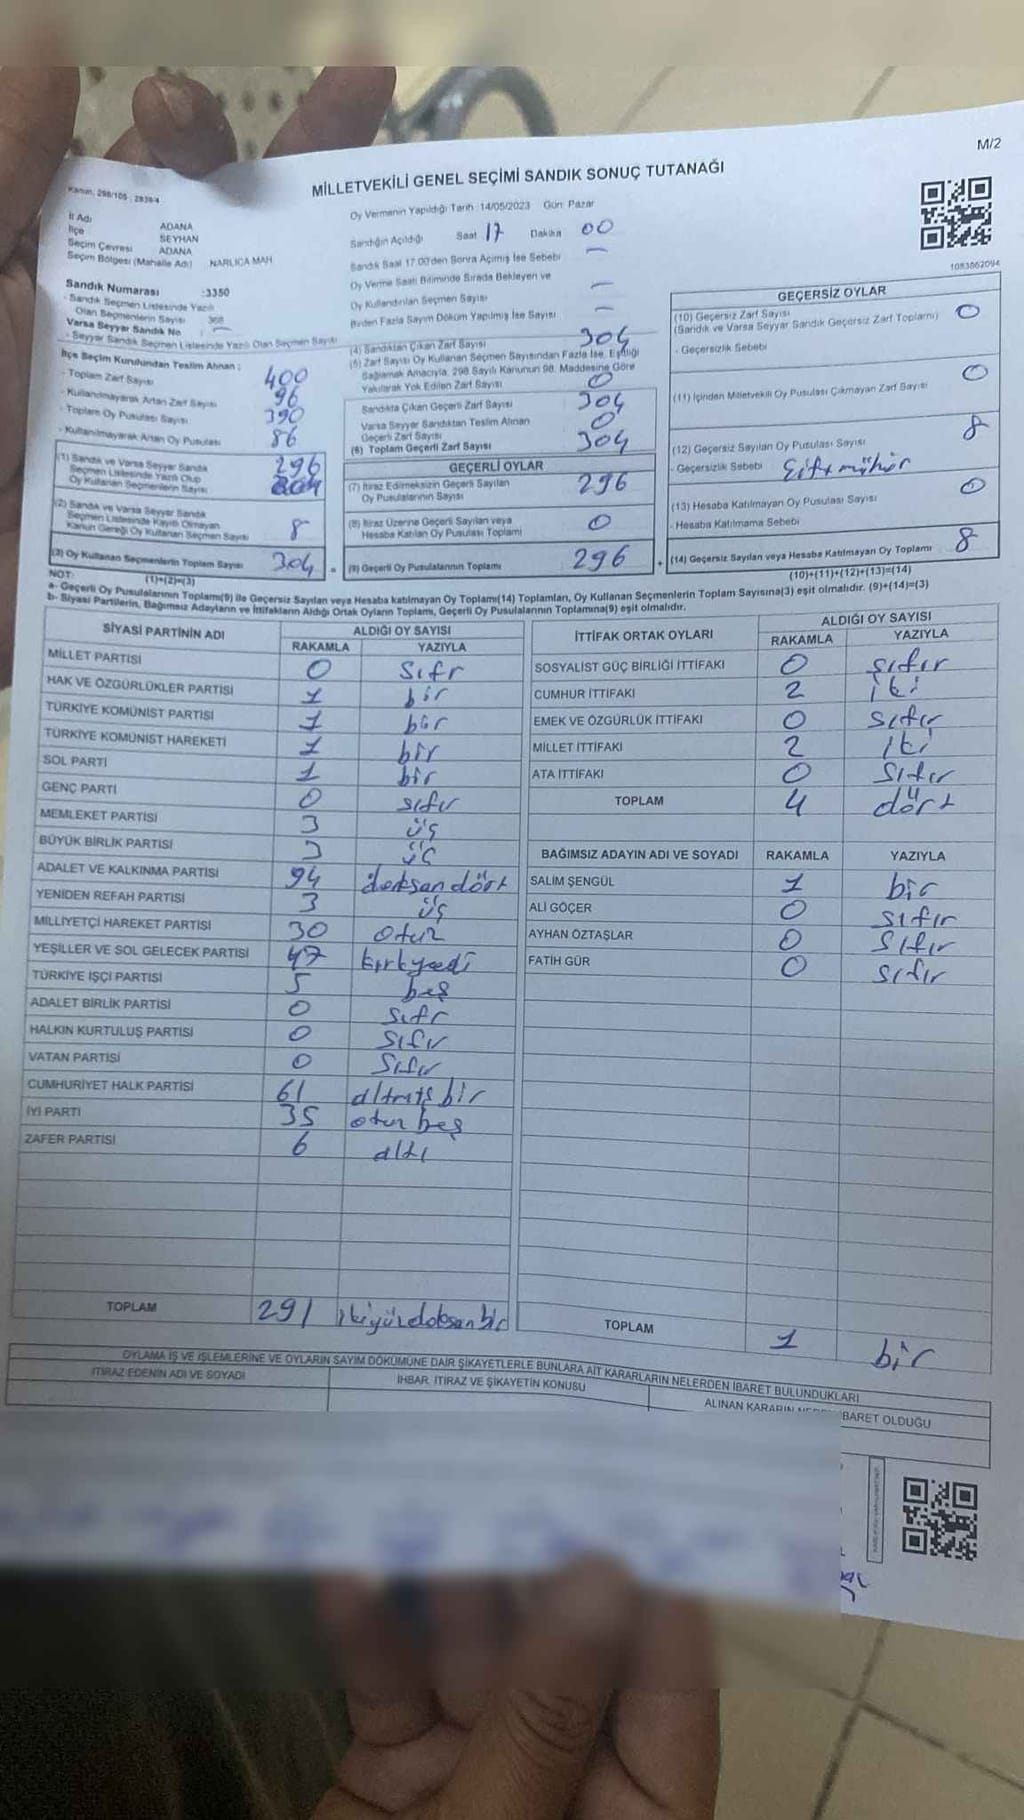 M/2
MİLLETVEKİLİ GENEL SEÇİMİ SANDIK SONUÇ TUTANAĞI
Kanun, 298/105 ; 2839/4
İl Adı ADANA
İlçe SEYHAN
Seçim Çevresi ADANA
Seçim Bölgesi (Mahalle Adı) NARLICA MAH
Sandık Numarası :3350
- Sandık Seçmen Listesinde Yazılı
Olan Seçmenlerin Sayısı 368
Varsa Seyyar Sandık No : —
- Seyyar Sandık Seçmen Listesinde Yazılı Olan Seçmen Sayısı
İlçe Seçim Kurulundan Teslim Alınan :
- Toplam Zarf Sayısı 400
- Kullanılmayarak Artan Zarf Sayısı 96
- Toplam Oy Pusulası Sayısı 390
- Kullanılmayarak Artan Oy Pusulası 86
(1) Sandık ve Varsa Seyyar Sandık
Seçmen Listesinde Yazılı Olup
Oy Kullanan Seçmenlerin Sayısı 296
(2) Sandık ve Varsa Seyyar Sandık
Seçmen Listesinde Kayıtlı Olmayan
Kanun Gereği Oy Kullanan Seçmen Sayısı 8
(3) Oy Kullanan Seçmenlerin Toplam Sayısı 304
(1)+(2)=(3)
Oy Vermenin Yapıldığı Tarih 14/05/2023 Gün: Pazar
Sandığın Açıldığı Saat 17 Dakika 00
Sandık Saat 17.00'den Sonra Açılmış İse Sebebi —
Oy Verme Saati Bitiminde Sırada Bekleyen ve
Oy Kullandırılan Seçmen Sayısı —
Birden Fazla Sayım Döküm Yapılmış İse Sayısı —
(4) Sandıktan Çıkan Zarf Sayısı 304
(5) Zarf Sayısı Oy Kullanan Seçmen Sayısından Fazla İse, Eşitliği
Sağlamak Amacıyla, 298 Sayılı Kanunun 98. Maddesine Göre
Yakılarak Yok Edilen Zarf Sayısı 0
Sandıkta Çıkan Geçerli Zarf Sayısı 304
Varsa Seyyar Sandıktan Teslim Alınan
Geçerli Zarf Sayısı 0
(6) Toplam Geçerli Zarf Sayısı 304
GEÇERLİ OYLAR
(7) İtiraz Edilmeksizin Geçerli Sayılan
Oy Pusulalarının Sayısı 296
(8) İtiraz Üzerine Geçerli Sayılan veya
Hesaba Katılan Oy Pusulası Toplamı 0
= (9) Geçerli Oy Pusulalarının Toplamı 296 +
1083862094
GEÇERSİZ OYLAR
(10) Geçersiz Zarf Sayısı 0
(Sandık ve Varsa Seyyar Sandık Geçersiz Zarf Toplamı)
- Geçersizlik Sebebi
(11) İçinden Milletvekili Oy Pusulası Çıkmayan Zarf Sayısı 0
(12) Geçersiz Sayılan Oy Pusulası Sayısı 8
- Geçersizlik Sebebi
(13) Hesaba Katılmayan Oy Pusulası Sayısı 0
- Hesaba Katılmama Sebebi
(14) Geçersiz Sayılan veya Hesaba Katılmayan Oy Toplamı 8
(10)+(11)+(12)+(13)=(14)
NOT:
a- Geçerli Oy Pusulalarının Toplamı(9) ile Geçersiz Sayılan veya Hesaba katılmayan Oy Toplamı(14) Toplamları, Oy Kullanan Seçmenlerin Toplam Sayısına(3) eşit olmalıdır. (9)+(14)=(3)
b- Siyasi Partilerin, Bağımsız Adayların ve İttifakların Aldığı Ortak Oyların Toplamı, Geçerli Oy Pusulalarının Toplamına(9) eşit olmalıdır.
SİYASİ PARTİNİN ADI ALDIĞI OY SAYISI
RAKAMLA YAZIYLA
MİLLET PARTİSİ 0 sıfr
HAK VE ÖZGÜRLÜKLER PARTİSİ 1 bir
TÜRKİYE KOMÜNİST PARTİSİ 1 bir
TÜRKİYE KOMÜNİST HAREKETİ 1 bir
SOL PARTİ 1 bir
GENÇ PARTİ 0 sıfır
MEMLEKET PARTİSİ 3 üç
BÜYÜK BİRLİK PARTİSİ 3 üç
ADALET VE KALKINMA PARTİSİ 94 doksan dört
YENİDEN REFAH PARTİSİ 3 üç
MİLLİYETÇİ HAREKET PARTİSİ 30 otuz
YEŞİLLER VE SOL GELECEK PARTİSİ 47 kırkyedi
TÜRKİYE İŞÇİ PARTİSİ 5 beş
ADALET BİRLİK PARTİSİ 0 sıfr
HALKIN KURTULUŞ PARTİSİ 0 sıfır
VATAN PARTİSİ 0 sıfır
CUMHURİYET HALK PARTİSİ 61 altmış bir
İYİ PARTİ 35 otuz beş
ZAFER PARTİSİ 6 altı
TOPLAM 291 ikiyüzdoksanbir
İTTİFAK ORTAK OYLARI ALDIĞI OY SAYISI
RAKAMLA YAZIYLA
SOSYALİST GÜÇ BİRLİĞİ İTTİFAKI 0 sıfır
CUMHUR İTTİFAKI 2 iki
EMEK VE ÖZGÜRLÜK İTTİFAKI 0 sıfır
MİLLET İTTİFAKI 2 iki
ATA İTTİFAKI 0 sıfır
TOPLAM 4 dört
BAĞIMSIZ ADAYIN ADI VE SOYADI RAKAMLA YAZIYLA
SALİM ŞENGÜL 1 bir
ALİ GÖÇER 0 sıfır
AYHAN ÖZTAŞLAR 0 sıfır
FATİH GÜR 0 sıfır
TOPLAM 1 bir
OYLAMA İŞ VE İŞLEMLERİNE VE OYLARIN SAYIM DÖKÜMÜNE DAİR ŞİKAYETLERLE BUNLARA AİT KARARLARIN NELERDEN İBARET BULUNDUKLARI
İTİRAZ EDENİN ADI VE SOYADI İHBAR, İTİRAZ VE ŞİKAYETİN KONUSU ALINAN KARARIN İBARET OLDUĞU